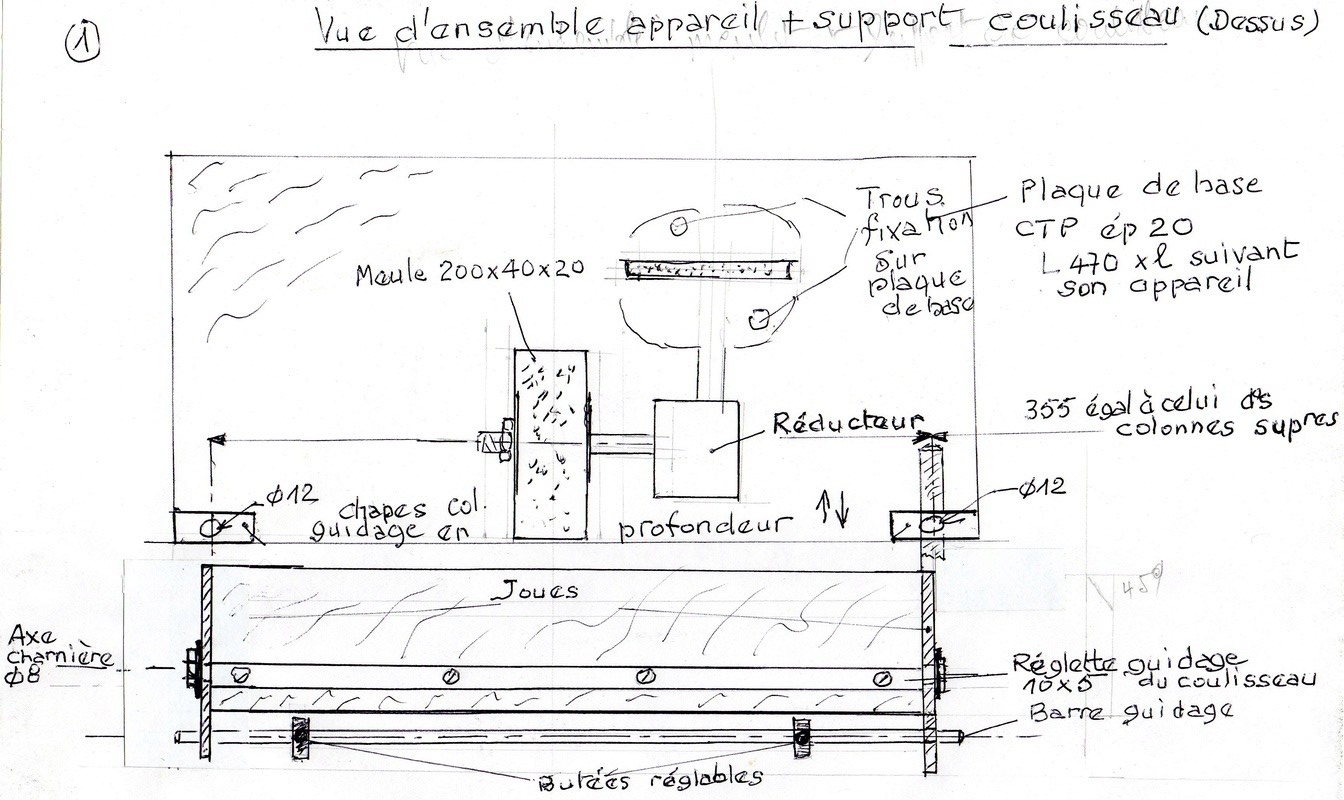 1
Vue d'ensemble appareil + support coulisseau (Dessus)
Trous
fixation
sur
plaque
de base
Plaque de base
CTP ép 20
L 470 x l suivant
son appareil
Meule 200x40x20
355 égal à celui des
colonnes supres
Réducteur
φ12
chapes col.
guidage en
profondeur
φ12
Joues
45°
Axe
charnière
φ8
Réglette guidage
10x5 du coulisseau
Barre guidage
Butées réglables